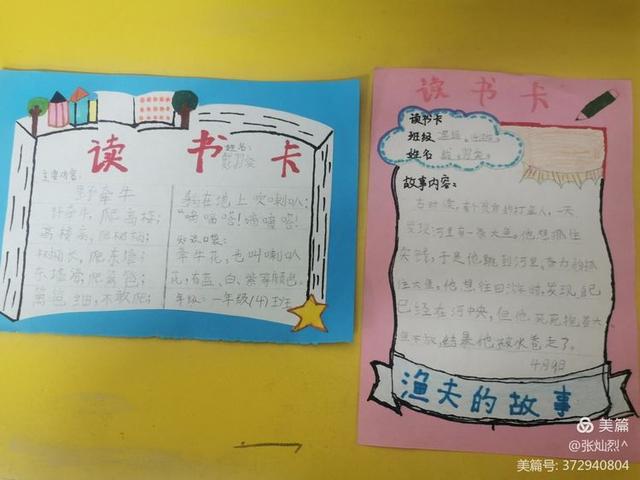 读书卡
姓名：
主要内容：
野牵牛
野牵牛，爬高楼；
高楼高，爬树梢；
树梢长，爬东墙；
东墙滑，爬篱笆；
篱笆细，不敢爬；
躺在地上吹喇叭：
“嘀嘀嗒！嘀嘀嗒！
知识口袋：
牵牛花，也叫喇叭
花，有蓝、白、紫等颜色。
年级：一年级(4)班
读书卡
读书卡
班级
姓名
故事内容：
古时候，有个贫穷的打鱼人，一天
发现河里有一条大鱼。他想抓住
大鱼，于是他跳到河里，奋力的抓
住大鱼，他想往回游时，发现自己
已经在河中央，但他死死抱着大
鱼不放，结果他被水卷走了。
4月9日
渔夫的故事
美篇
@张灿烈^
美篇号: 372940804